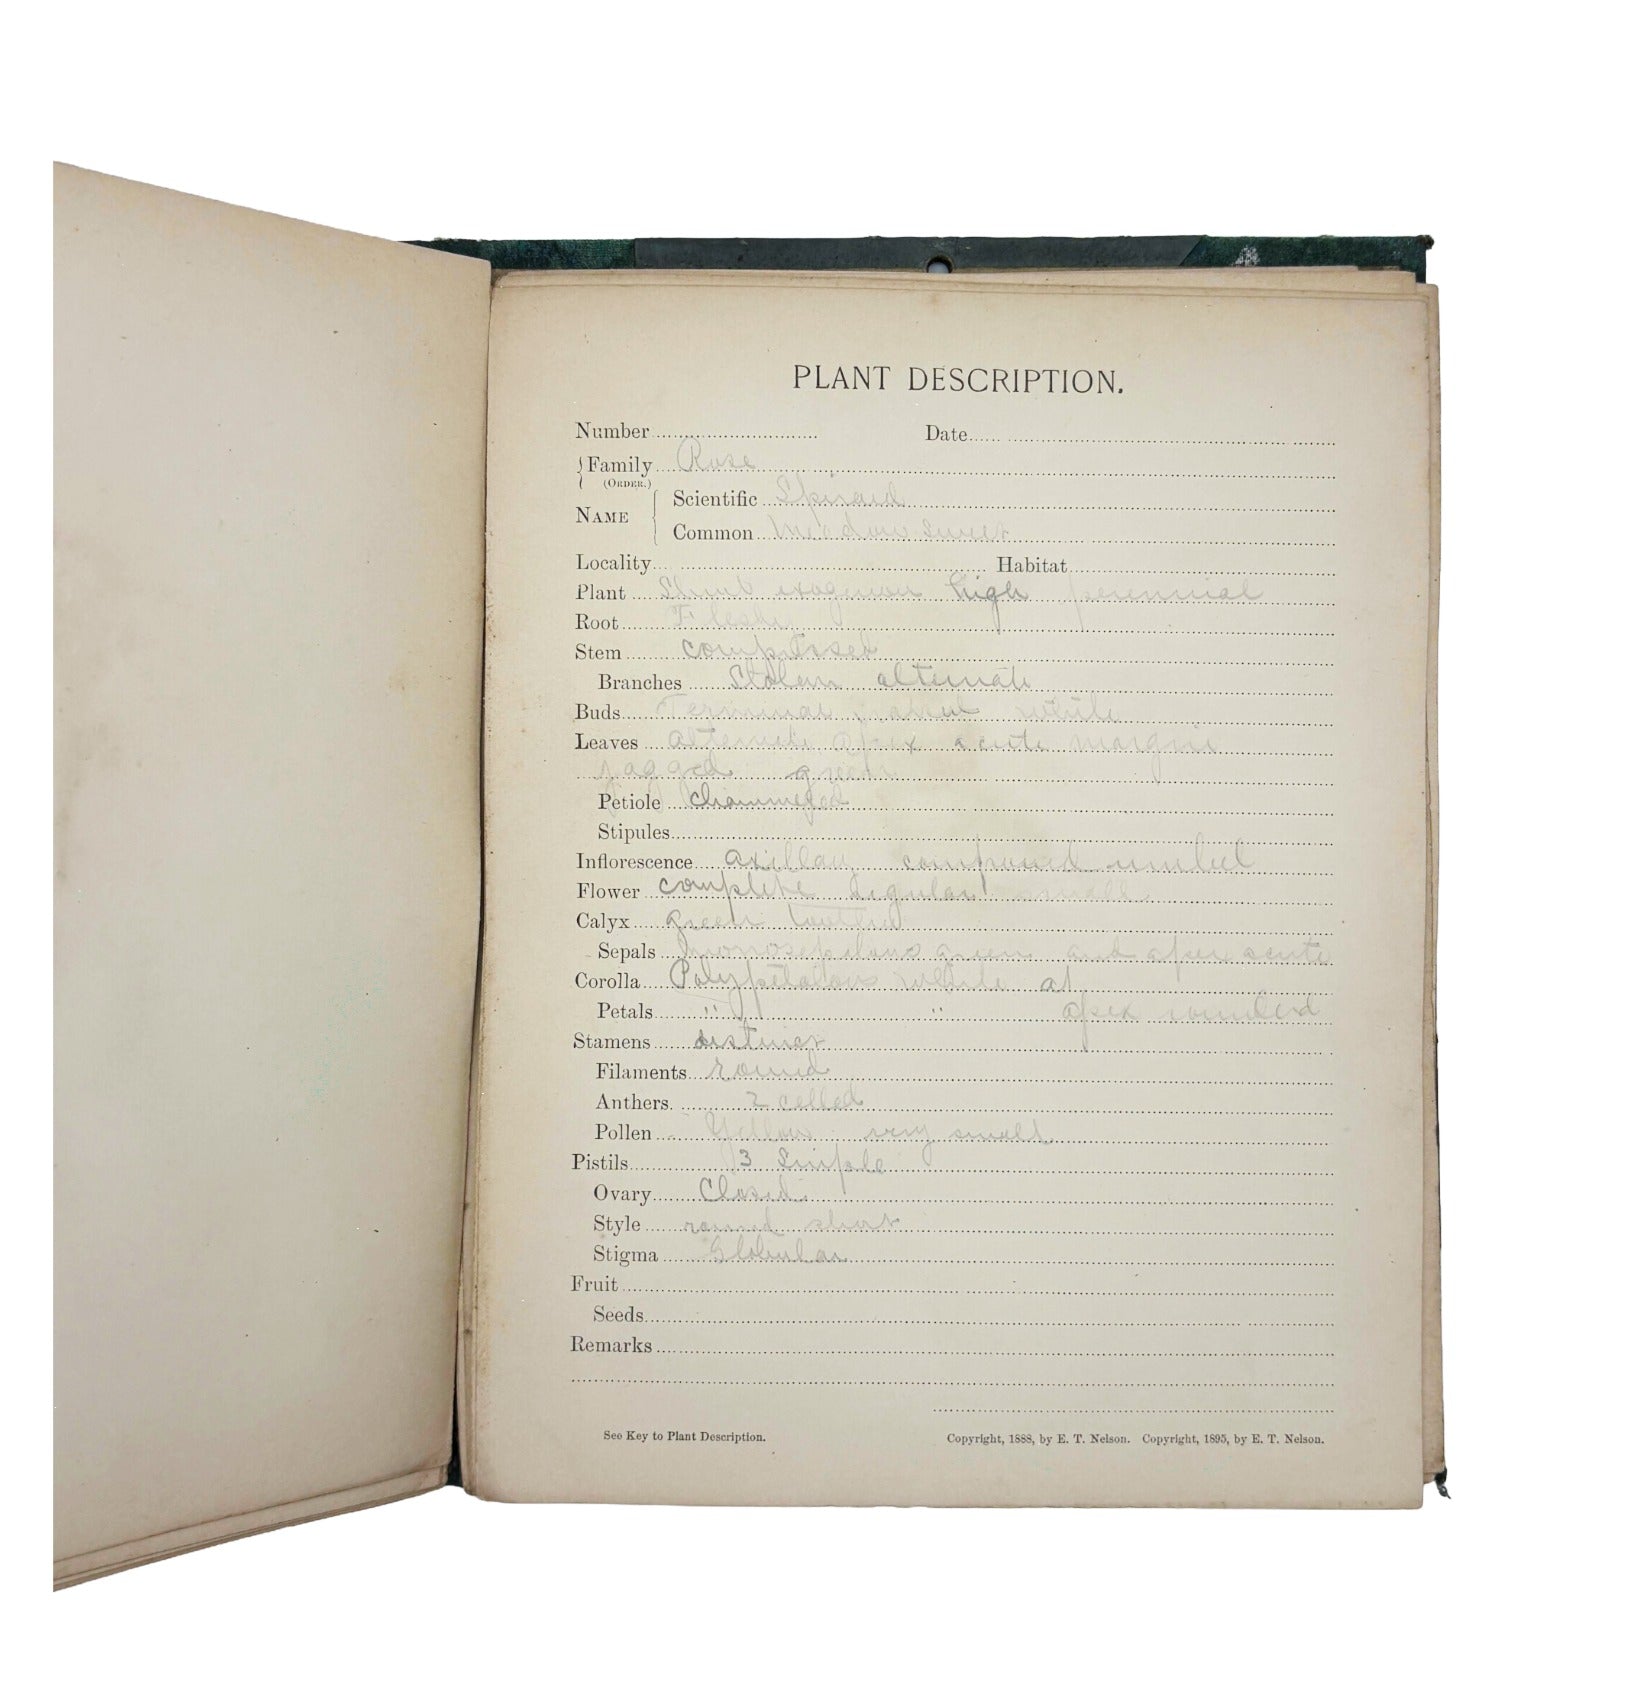 PLANT DESCRIPTION.
Number Date
Family Rose
(ORDER.)
Scientific
NAME
Common Meadow sweet
Locality Habitat
Plant Shrub exogenous high perennial
Root Fleshy
Stem compressed
Branches alternate
Buds Terminal white
Leaves alternate apex acute margin
jagged green
Petiole channeled
Stipules
Inflorescence axillary compound umbel
Flower complete regular small
Calyx green toothed
Sepals Monosepalous green and apex acute
Corolla Polypetalous white at
Petals " " apex rounded
Stamens distinct
Filaments round
Anthers. 2 celled
Pollen Yellow very small
Pistils 3 Simple
Ovary Closed
Style round short
Stigma Globular
Fruit
Seeds
Remarks
See Key to Plant Description. Copyright, 1888, by E. T. Nelson. Copyright, 1895, by E. T. Nelson.